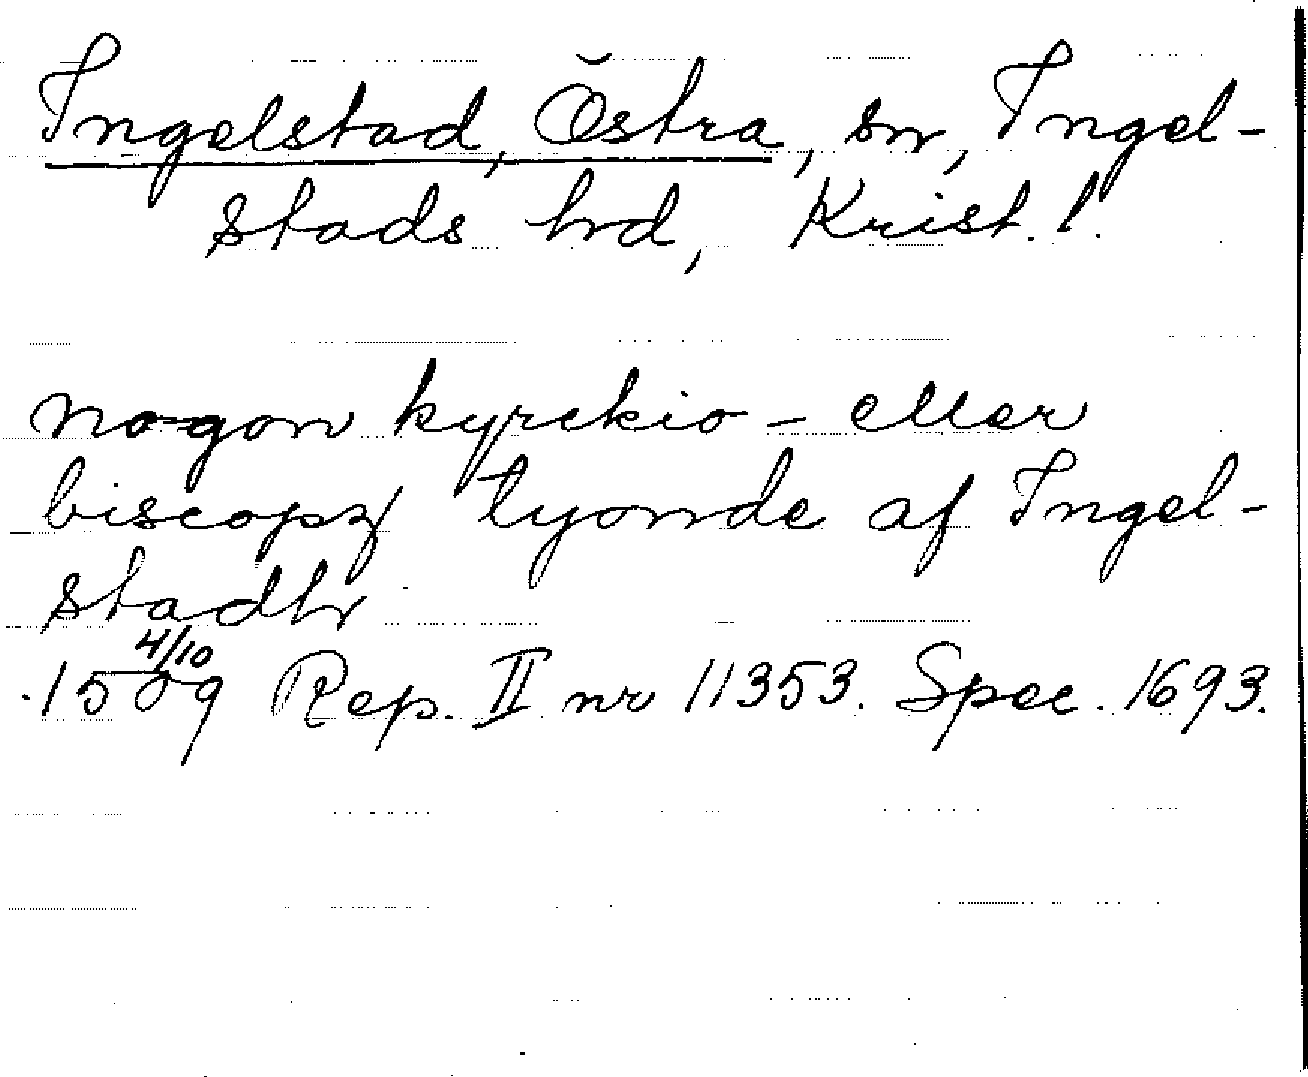 Ingelstad, Östra, sn, Ingel-
stads hd, Krist. l.
nogon kyrckio- eller
biscopz tyonde af Ingel-
stadh
4/10
1509 Rep. II nr 11353. Spec. 1693.